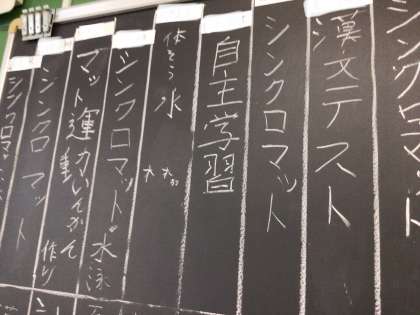 シンクロマット
漢文テスト
シンクロマット
自主学習
体そう 水
シンクロマット 水泳
マット運動
シンクロマット 作り
シンクロマット